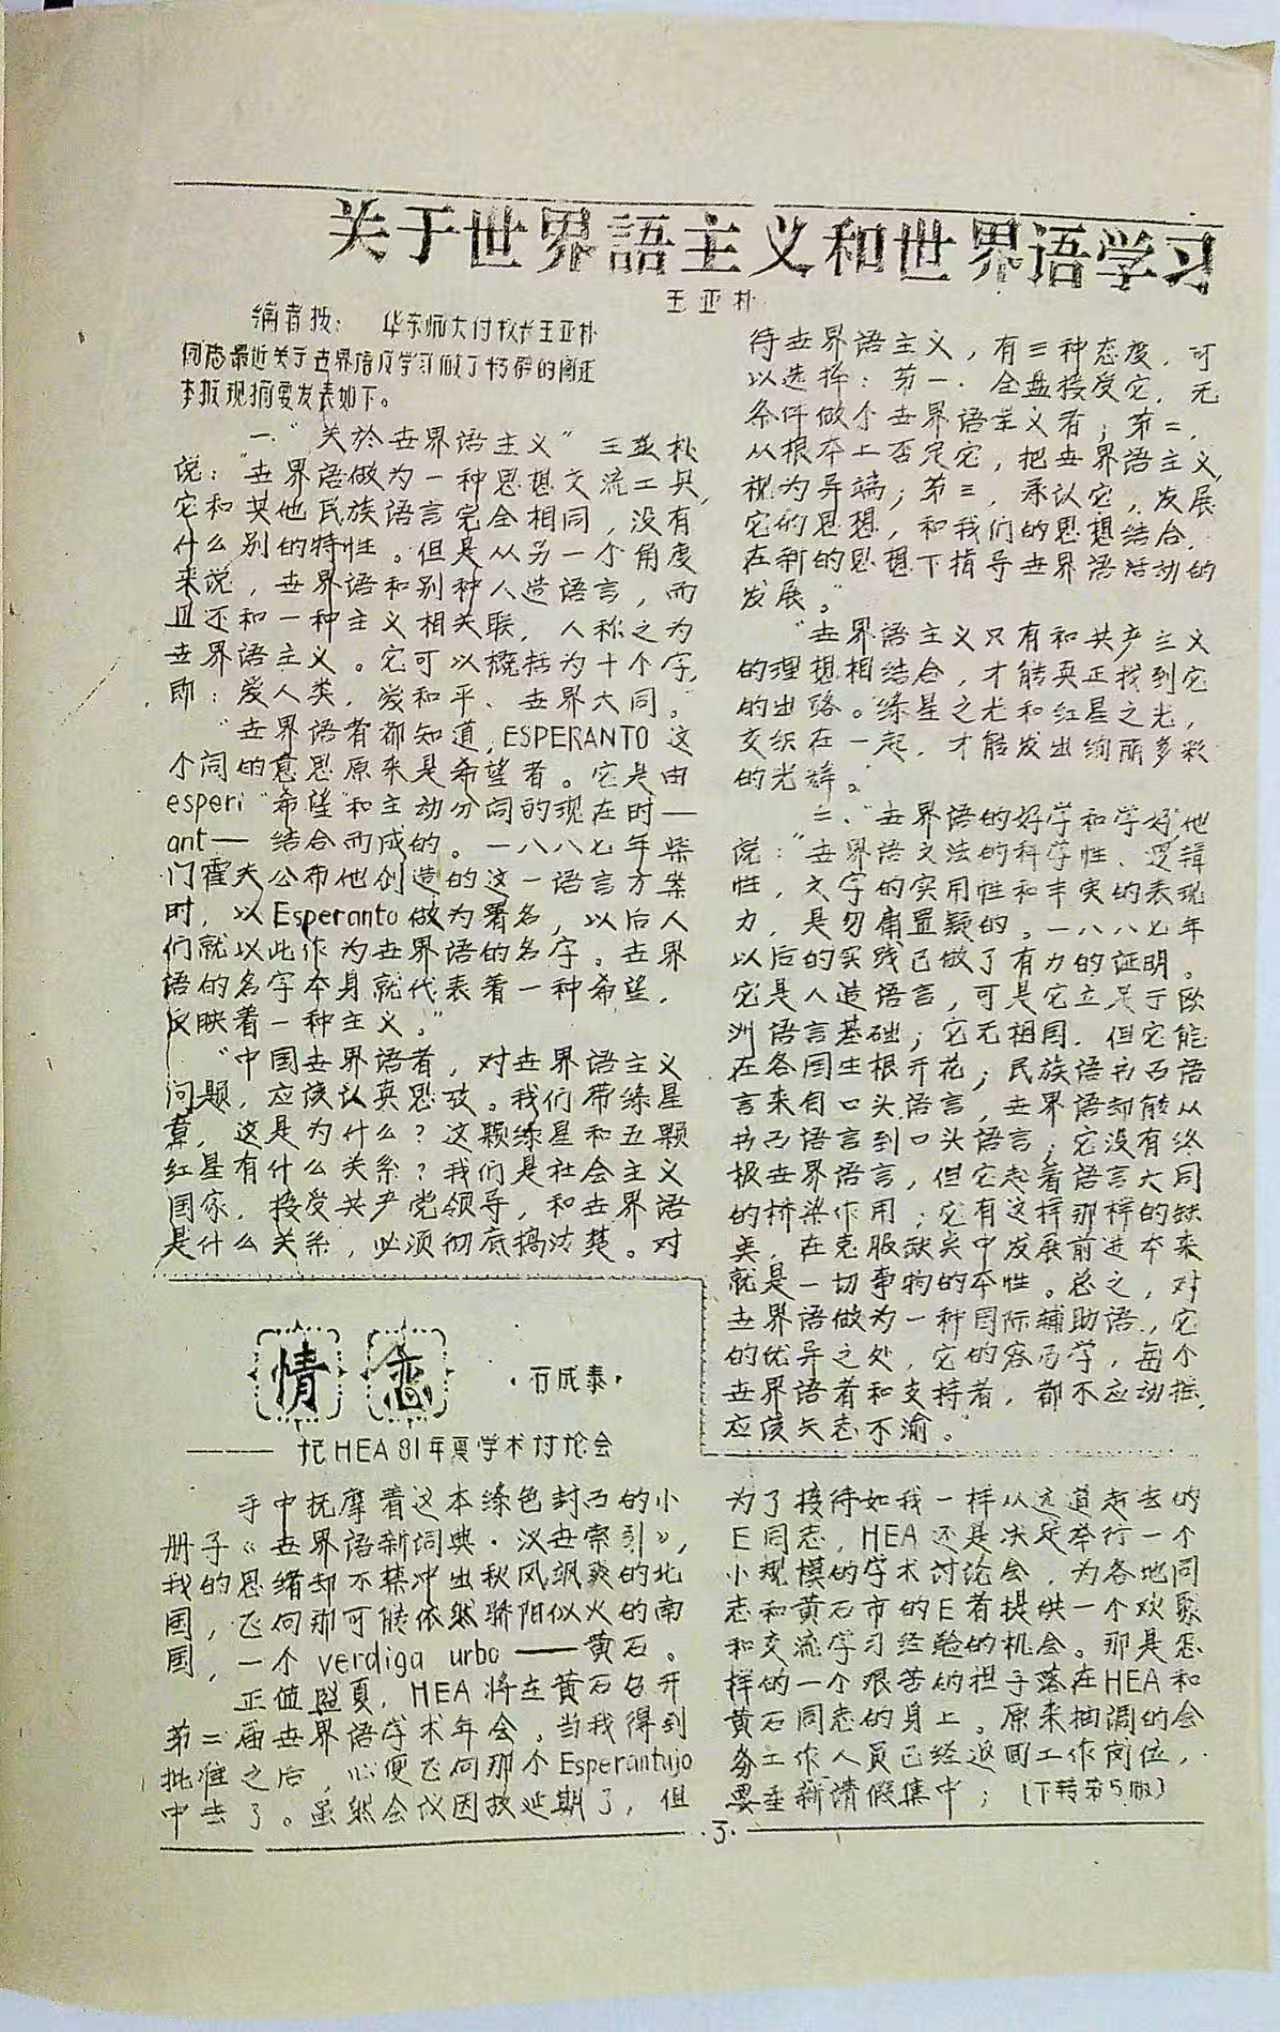 关于世界語主义和世界语学习
王亚朴
编者按： 华东师大付校长王亚朴
同志最近关于世界语及学习做了精辟的阐述
本报现摘要发表如下。
一、“关於世界语主义”王亚朴
说：“世界语做为一种思想交流工具，
它和其他民族语言完全相同，没有
什么别的特性。但是从另一个角度
来说，世界语和别种人造语言，而
且还和一种主义相关联，人称之为
世界语主义。它可以概括为十个字，
即：爱人类，爱和平、世界大同。”
“世界语者都知道，ESPERANTO 这
个词的意思原来是希望者。它是由
esperi“希望”和主动分词的现在时—
ant— 结合而成的。一八八七年柴
门霍夫公布他创造的这一语言方案
时，以Esperanto做为署名，以后人
们就以此作为世界语的名字。世界
语的名字本身就代表着一种希望，
反映着一种主义。”
“中国世界语者，对世界语主义
问题，应该认真思孜。我们带绿星
章，这是为什么？这颗绿星和五颗
红星有什么关系？我们是社会主义
国家，接受共产党领导，和世界语
是什么关系，必须彻底搞清楚。对
待世界语主义，有三种态度，可
以选择：第一，全盘接受它，无
条件做个世界语主义者；第二，
从根本上否定它，把世界语主义
视为异端；第三，承认它，发展
它的思想，和我们的思想结合，
在新的思想下指导世界语活动的
发展。”
“世界语主义只有和共产主义
的理想相结合，才能真正找到它
的出路。绿星之光和红星之光，
交织在一起，才能发出绚丽多彩
的光辉。”
二、“世界语的好学和学好”他
说：“世界语文法的科学性、逻辑
性，文字的实用性和丰实的表现
力，是勿庸置疑的。一八八七年
以后的实践已做了有力的证明。
它是人造语言，可是它立足于欧
洲语言基础；它无祖国，但它能
在各国生根开花；民族语书面语
言来自口头语言，世界语却能从
书面语言到口头语言；它没有终
极世界语言，但它起着语言大同
的桥梁作用；它有这样那样的缺
点，在克服缺点中发展前进本来
就是一切事物的本性。总之，对
世界语做为一种国际辅助语，它
的优异之处，它的容易学，每个
世界语者和支持者，都不应动摇，
应该矢志不渝。”
情 恋
·石成泰·
—— 记HEA 81年夏学术讨论会
手中抚摩着这本绿色封面的小
册子《世界语新词典·汉世索引》，
我的思绪却不禁冲出秋风飒爽的北
国，飞向那可能依然骄阳似火的南
国，一个 verdiga urbo ——黄石。
正值盛夏，HEA将在黄石召开
第二届世界语学术年会。当我得到
批准之后，心便飞向那个Esperantujo
中去了。虽然会议因故延期了，但
为了接待如我一样从远道赶去的
E同志，HEA还是决定举行一个
小规模的学术讨论会，为各地同
志和黄石市的E者提供一个欢聚
和交流学习经验的机会。那是怎
样的一个艰苦的担子落在HEA和
黄石同志的身上。原来抽调的会
务工作人员已经返回工作岗位，
要重新请假集中；（下转第5版）
·3·